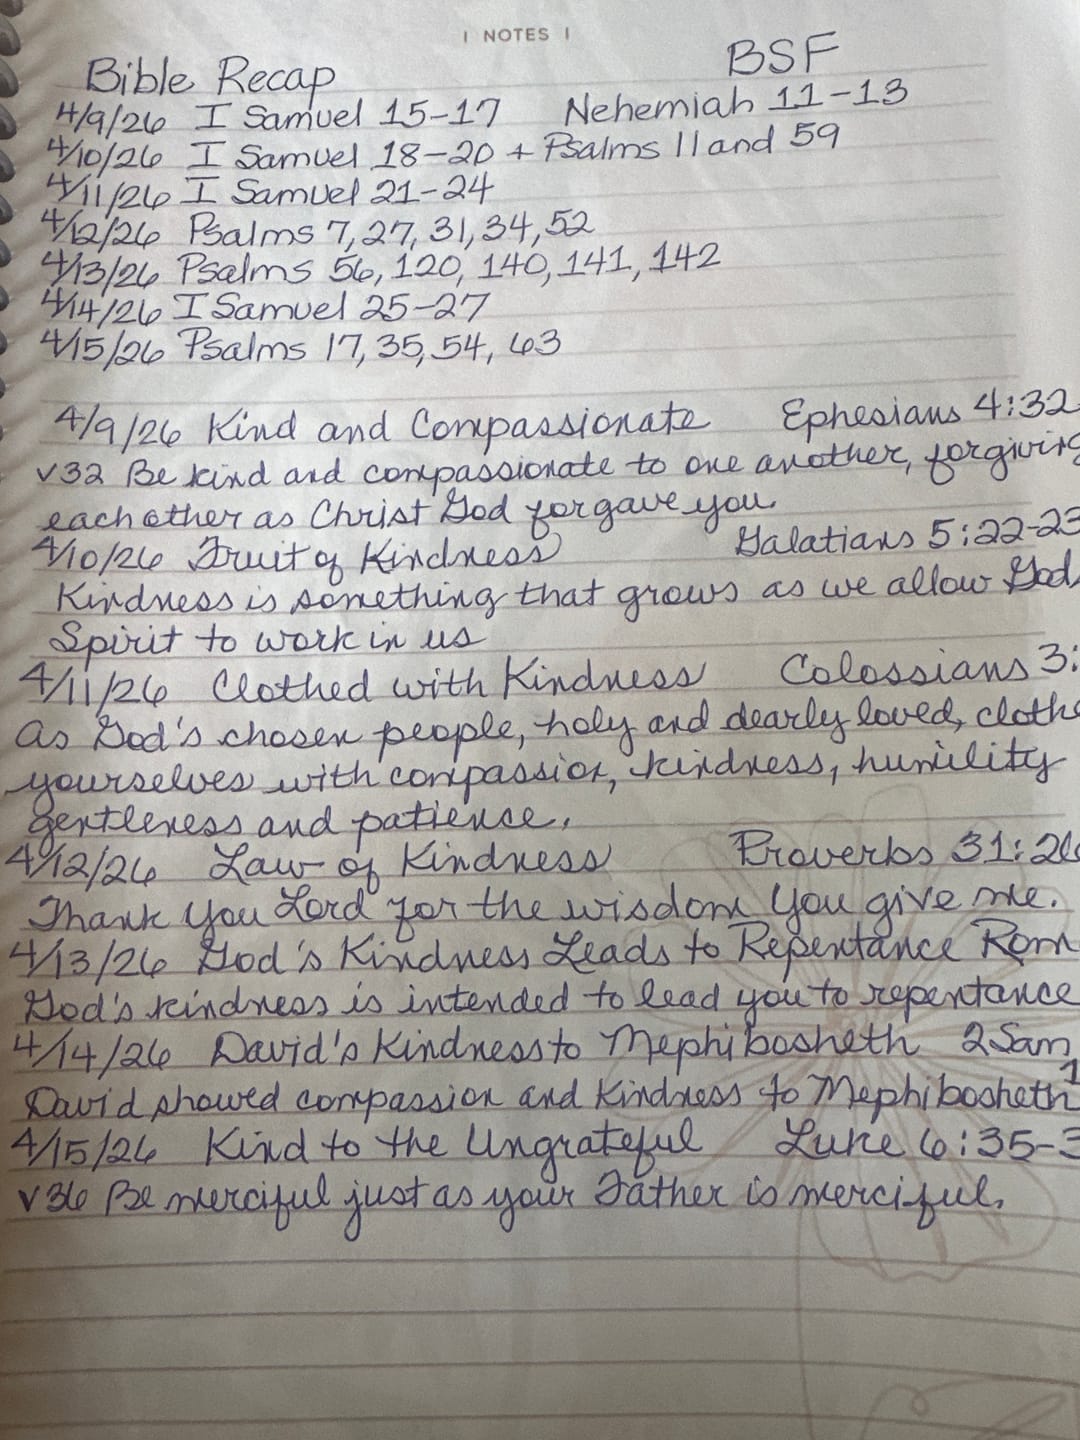 | NOTES |
Bible Recap BSF
4/9/26 I Samuel 15-17 Nehemiah 11-13
4/10/26 I Samuel 18-20 + Psalms 11 and 59
4/11/26 I Samuel 21-24
4/12/26 Psalms 7, 27, 31, 34, 52
4/13/26 Psalms 56, 120, 140, 141, 142
4/14/26 I Samuel 25-27
4/15/26 Psalms 17, 35, 54, 63
4/9/26 Kind and Compassionate Ephesians 4:32
v32 Be kind and compassionate to one another, forgiving
each other as Christ God forgave you.
4/10/26 Fruit of Kindness Galatians 5:22-23
Kindness is something that grows as we allow God
Spirit to work in us
4/11/26 Clothed with Kindness Colossians 3:
As God's chosen people, holy and dearly loved, clothe
yourselves with compassion, kindness, humility
gentleness and patience.
4/12/26 Law of Kindness Proverbs 31:26
Thank You Lord for the wisdom You give me.
4/13/26 God's Kindness Leads to Repentance Rom
God's kindness is intended to lead you to repentance
4/14/26 David's Kindness to Mephibosheth 2 Sam
David showed compassion and kindness to Mephibosheth
4/15/26 Kind to the Ungrateful Luke 6:35-3
v36 Be merciful just as your Father is merciful.